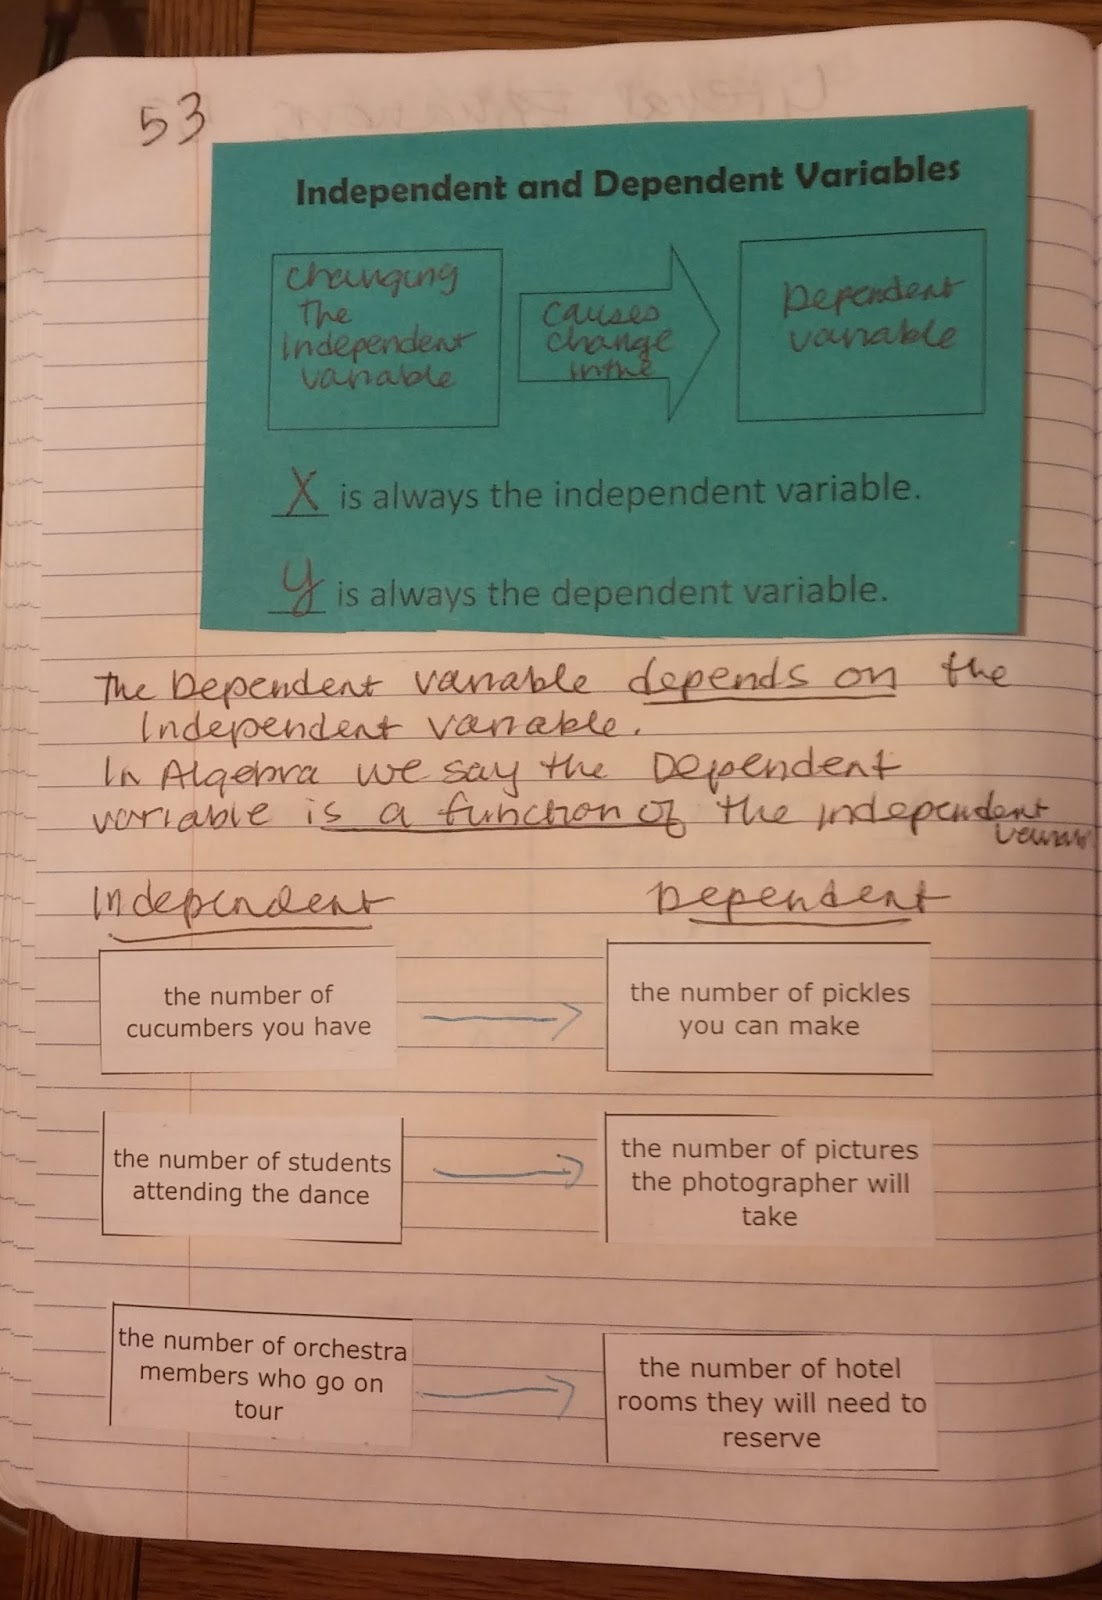 53
Independent and Dependent Variables
Changing
The
Independent
variable
causes
change
in the
Dependent
variable
X is always the independent variable.
y is always the dependent variable.
The Dependent variable depends on the
Independent variable.
In Algebra we say the Dependent
variable is a function of the independent
Independent
Dependent
the number of
cucumbers you have
the number of pickles
you can make
the number of students
attending the dance
the number of pictures
the photographer will
take
the number of orchestra
members who go on
tour
the number of hotel
rooms they will need to
reserve